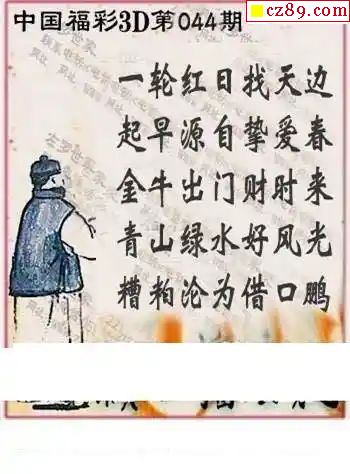 cz89.com
中国福彩3D第044期
一轮红日找天边
起早源自挚爱春
金牛出门财时来
青山绿水好风光
糟粕沦为借口鹏